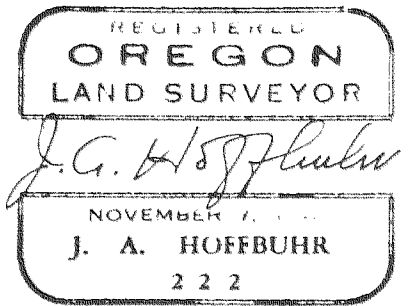 REGISTERED
OREGON
LAND SURVEYOR
J. A. Hoffbuhr
NOVEMBER 7,
J. A. HOFFBUHR
222